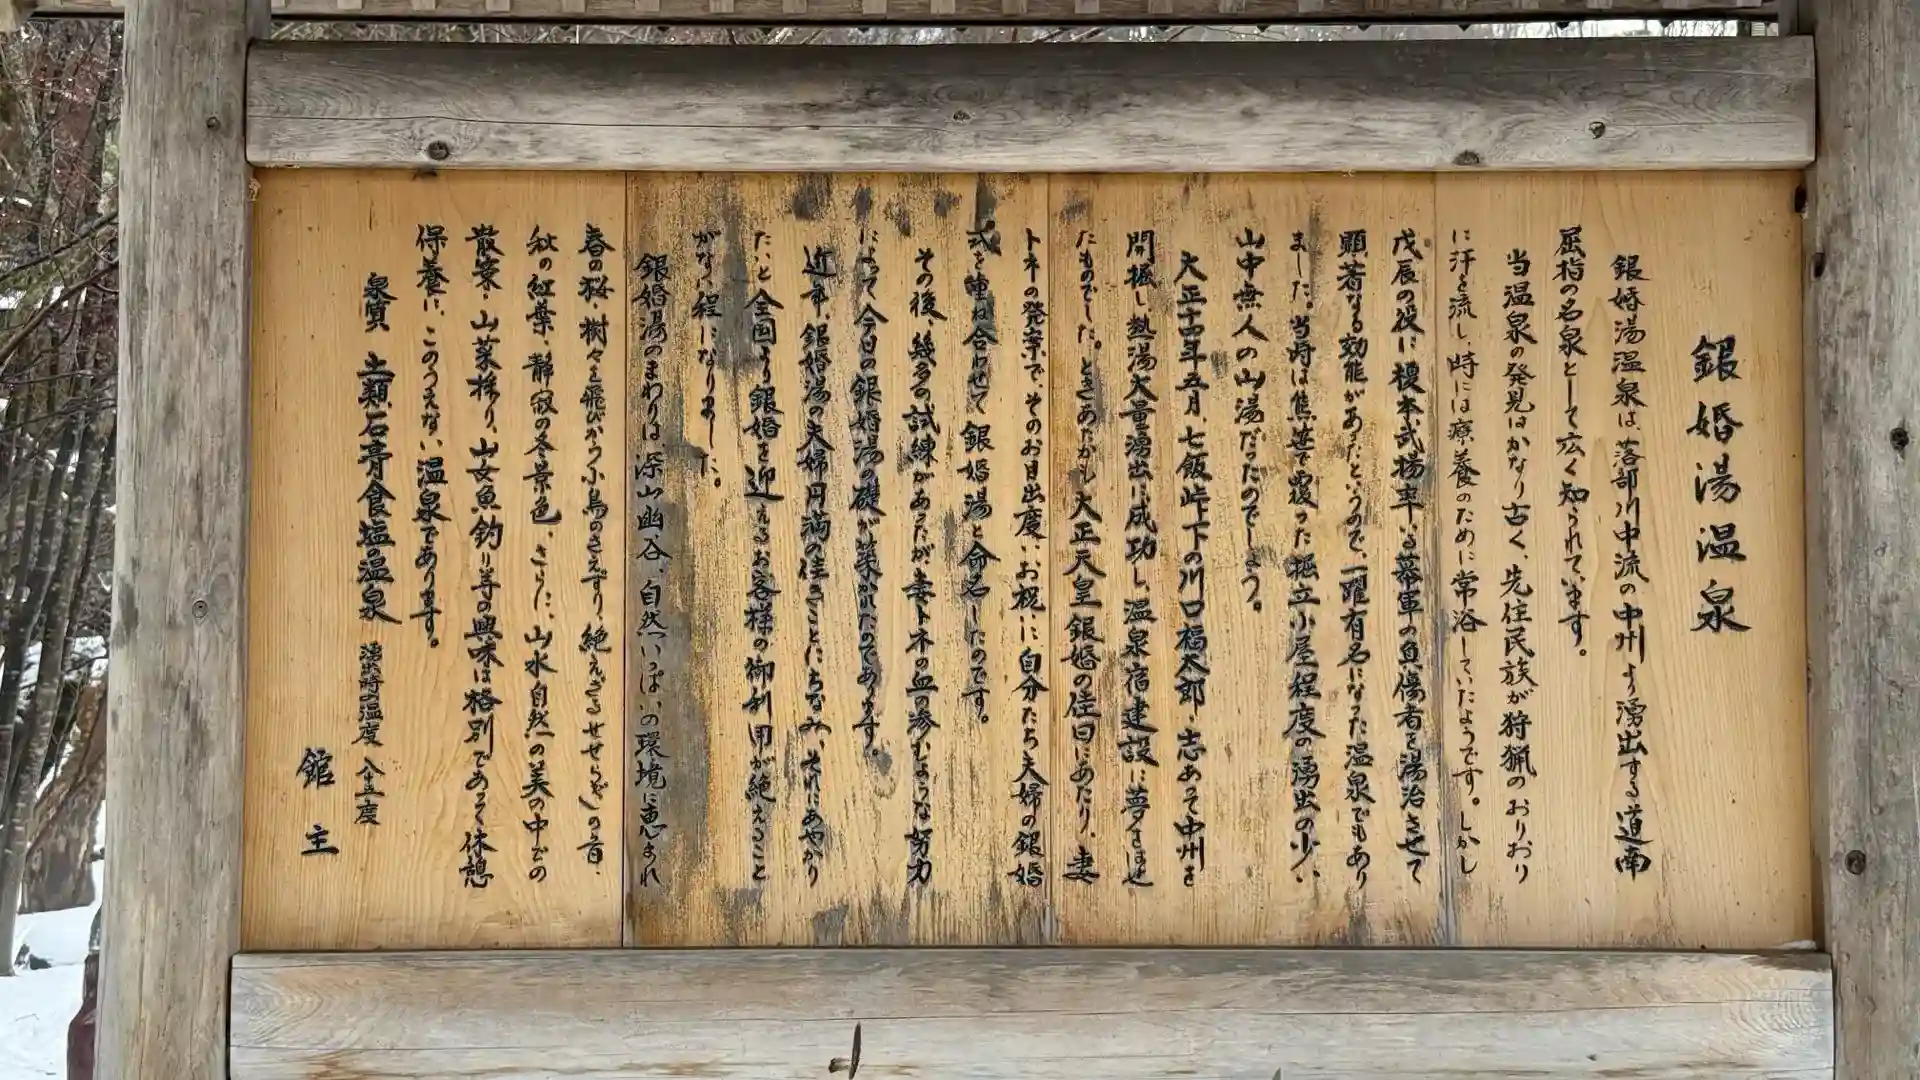 銀婚湯温泉
銀婚湯温泉は、落部川中流の中州より湧出する道南
屈指の名泉として広く知られています。
当温泉の発見はかなり古く、先住民族が狩猟のおりおり
に汗を流し、時には療養のために常浴していたようです。しかし
戊辰の役に榎本武揚率いる幕軍の負傷者を湯治させて
顕著なる効能があったというので、一躍有名になった温泉でもあり
ました。当時は熊笹で覆った掘立小屋程度の湧出の少い
山中無人の山湯だったのでしょう。
大正十四年五月、七飯峠下の川口福太郎、志あって中州を
開掘し、熱湯大量湧出に成功し、温泉宿建設に夢をはせ
たものでした。ときあたかも大正天皇銀婚の佳日にあたり、妻
トネの発案で、そのお目出度いお祝いに自分たち夫婦の銀婚
式を重ね合わせて銀婚湯と命名したのです。
その後、幾多の試練があったが妻トネの血の滲むような努力
によって今日の銀婚湯の礎が築かれたのであります。
近年、銀婚湯の夫婦円満の佳きことにちなみ、それにあやかり
たいと全国より銀婚を迎えるお客様の御利用が絶えること
がない程になりました。
銀婚湯のまわりは、深山幽谷、自然いっぱいの環境に恵まれ
春の桜・樹々を飛びかう小鳥のさえずり、絶えざるせせらぎの音、
秋の紅葉、静寂の冬景色、さらに、山水自然の美の中での
散策・山菜採り、山女魚釣り等の興味は格別であって休憩
保養に、このうえない温泉であります。
泉質 土類石膏食塩の温泉 湧出時温度 八十五度
館主